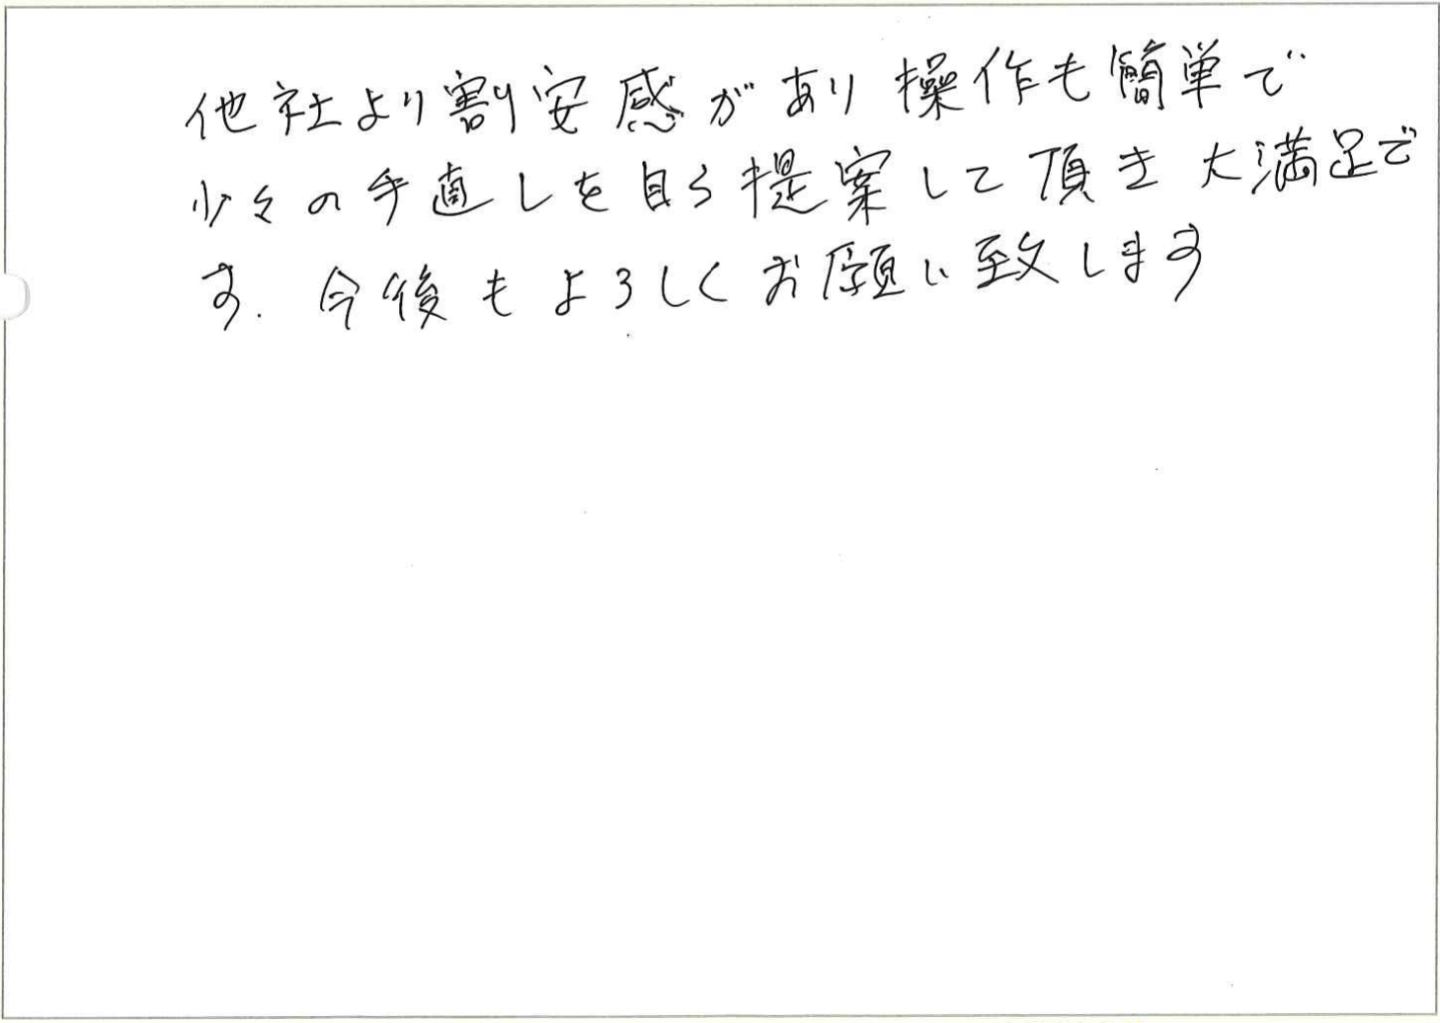 他社より割安感があり操作も簡単で
少々の手直しを自ら提案して頂き大満足で
す. 今後もよろしくお願い致します